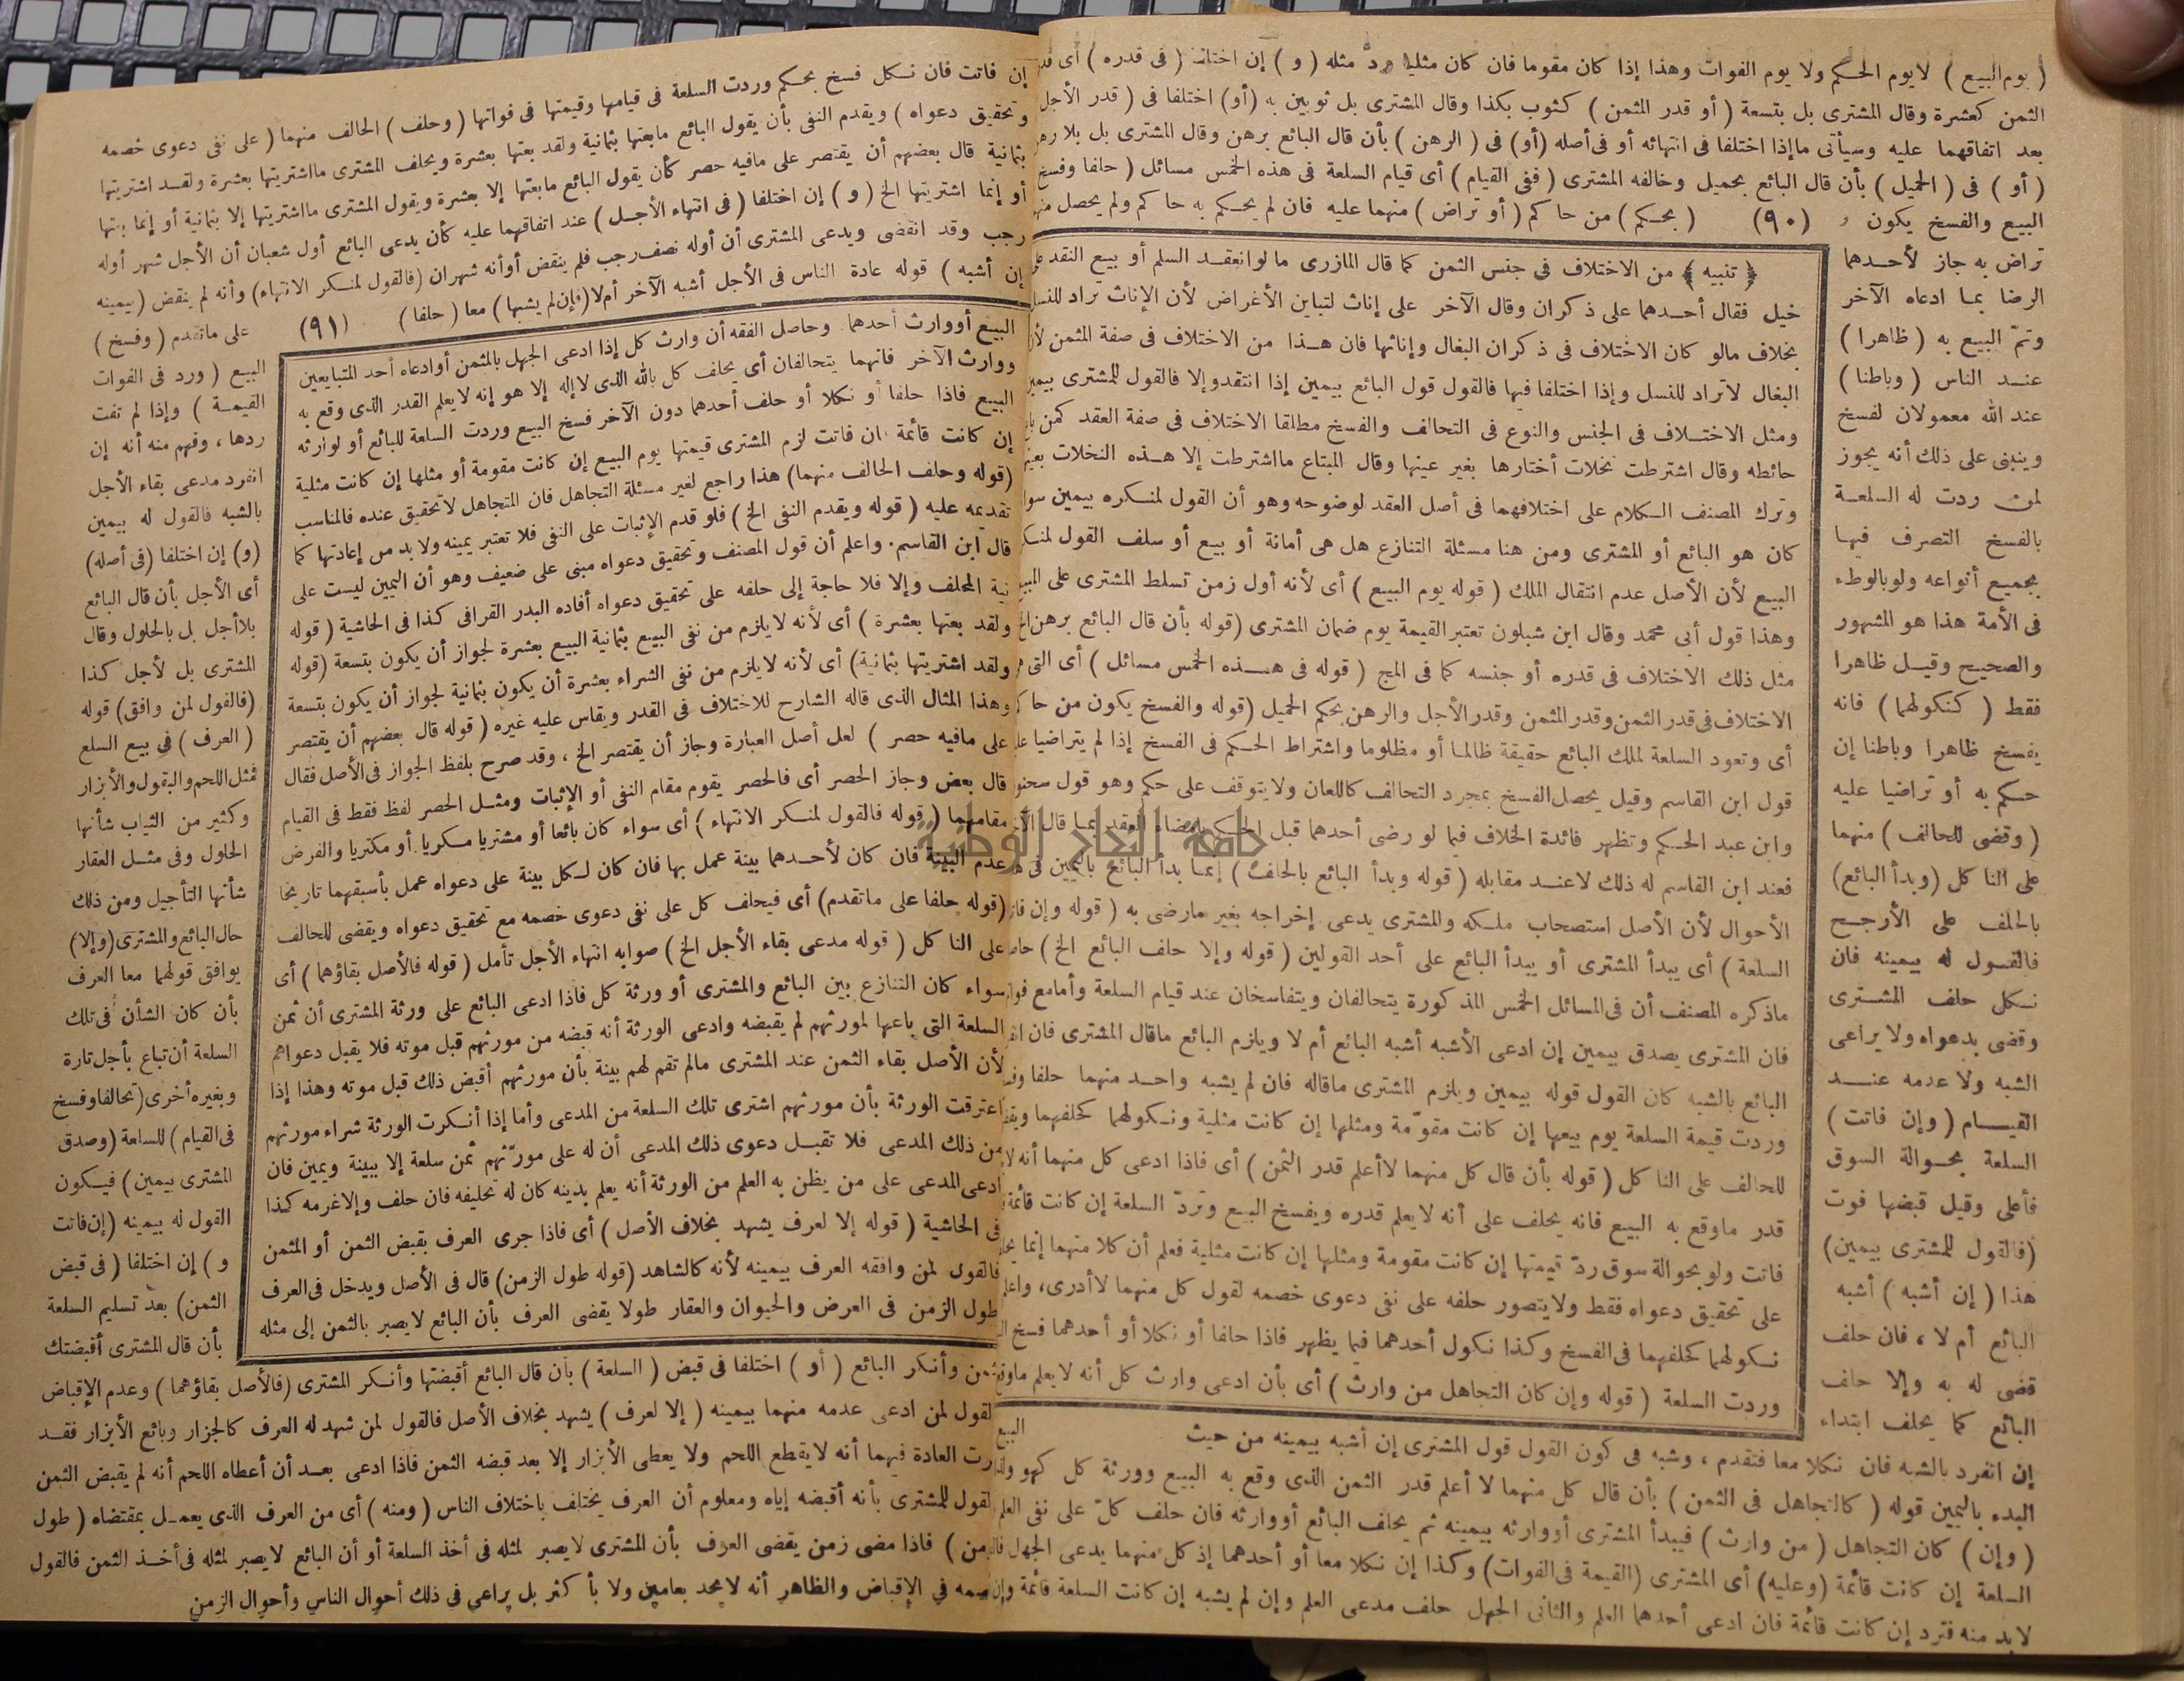 ( يوم البيع ) لا يوم الحكم ولا يوم الفوات وهذا إذا كان مقوما فان كان مثليا ردّ مثله ( و ) إن اختلفا ( فى قدره ) أى
الثمن كعشرة وقال المشترى بل بتسعة ( أو قدر المثمن ) كثوب بكذا وقال المشترى بل ثوبين به (أو) اختلفا فى ( قدر الأجل
بعد اتفاقهما عليه وسيأتى ما إذا اختلفا فى انتهائه أو فى أصله (أو) فى ( الرهن ) بأن قال البائع برهن وقال المشترى بل بلا
( أو ) فى ( الحميل ) بأن قال البائع بحميل وخالفه المشترى ( ففى القيام ) أى قيام السلعة فى هذه الخمس مسائل ( حلفا وفسخ
البيع والفسخ يكون (٩٠) ( بحكم ) من حاكم ( أو تراض ) منهما عليه فان لم يحكم به حاكم ولم يحصل
تراض به جاز لأحدهما
الرضا بما ادعاه الآخر
وتمّ البيع به ( ظاهرا )
عند الناس ( وباطنا )
عند الله معمولان لفسخ
وينبنى على ذلك أنه يجوز
لمن ردت له السلعة
بالفسخ التصرف فيها
بجميع أنواعه ولو بالوطء
فى الأمة هذا هو المشهور
والصحيح وقيل ظاهرا
فقط ( كنكولهما ) فانه
يفسخ ظاهرا وباطنا إن
حكم به أو تراضيا عليه
( وقضى للحالف ) منهما
على الناكل (وبدأ البائع)
بالحلف على الأرجح
فالقول له بيمينه فان
نكل حلف المشترى
وقضى بدعواه ولا يراعى
الشبه ولا عدمه عند
القيام ( وإن فاتت )
السلعة بحوالة السوق
فأعلى وقيل قبضها فوت
(فالقول للمشترى بيمين)
هذا ( إن أشبه ) أشبه
البائع أم لا ، فان حلف
قضى له به وإلا حلف
البائع كما يحلف ابتداء
﴿ تنبيه ﴾ من الاختلاف فى جنس الثمن كما قال المازرى ما لو انعقد السلم أو بيع النقد على
خيل فقال أحدهما على ذكران وقال الآخر على إناث لتباين الأغراض لأن الإناث تراد للنسل
بخلاف مالو كان الاختلاف فى ذكران البغال وإناثها فان هذا من الاختلاف فى صفة المثمن
البغال لا تراد للنسل وإذا اختلفا فيها فالقول قول البائع بيمين إذا انتقد وإلا فالقول للمشترى
ومثل الاختلاف فى الجنس والنوع فى التحالف والفسخ مطلقا الاختلاف فى صفة العقد كمن
حائطه وقال اشترطت نخلات أختارها بغير عينها وقال المبتاع ما اشترطت إلا هذه النخلات
وترك المصنف الكلام على اختلافهما فى أصل العقد لوضوحه وهو أن القول لمنكره بيمين
كان هو البائع أو المشترى ومن هنا مسئلة التنازع هل هى أمانة أو بيع أو سلف القول
البيع لأن الأصل عدم انتقال الملك ( قوله يوم البيع ) أى لأنه أول زمن تسلط المشترى على
وهذا قول أبى محمد وقال ابن شبلون تعتبر القيمة يوم ضمان المشترى (قوله بأن قال البائع برهن
مثل ذلك الاختلاف فى قدره أو جنسه كما فى المج ( قوله فى هذه الخمس مسائل ) أى التى
الاختلاف فى قدر الثمن وقدر المثمن وقدر الأجل والرهن بحكم الحميل (قوله والفسخ يكون من
أى وتعود السلعة لملك البائع حقيقة ظالما أو مظلوما واشتراط الحكم فى الفسخ إذا لم يتراضيا
قول ابن القاسم وقيل يحصل الفسخ بمجرد التحالف كاللعان ولا يتوقف على حكم وهو قول
وابن عبد الحكم وتظهر فائدة الخلاف فيما لو رضى أحدهما قبل الحكم بامضاء العقد بما قال
فعند ابن القاسم له ذلك لا عند مقابله ( قوله وبدأ البائع بالحلف ) إنما بدأ البائع باليمين فى
الأحوال لأن الأصل استصحاب ملكه والمشترى يدعى إخراجه بغير ما رضى به ( قوله وإن
السلعة ) أى يبدأ المشترى أو يبدأ البائع على أحد القولين ( قوله وإلا حلف البائع الخ )
ماذكره المصنف أن فى المسائل الخمس المذكورة يتحالفان ويتفاسخان عند قيام السلعة وأما مع
فان المشترى يصدق بيمين إن ادعى الأشبه أشبه البائع أم لا ويلزم البائع ماقال المشترى فان
البائع بالشبه كان القول قوله بيمين ويلزم المشترى ماقاله فان لم يشبه واحد منهما حلفا
وردت قيمة السلعة يوم بيعها إن كانت مقوّمة ومثلها إن كانت مثلية ونكولهما كحلفهما
للحالف على الناكل ( قوله بأن قال كل منهما لا أعلم قدر الثمن ) أى فاذا ادعى كل منهما أنه
قدر ماوقع به البيع فانه يحلف على أنه لا يعلم قدره ويفسخ البيع وتردّ السلعة إن كانت قائمة
فاتت ولو بحوالة سوق ردّ قيمتها إن كانت مقومة ومثلها إن كانت مثلية فعلم أن كلا منهما إنما
على تحقيق دعواه فقط ولا يتصور حلفه على نفى دعوى خصمه لقول كل منهما لا أدرى،
نكولهما كحلفهما فى الفسخ وكذا نكول أحدهما فيما يظهر فاذا حلفا أو نكلا أو أحدهما فسخ
وردت السلعة ( قوله وإن كان التجاهل من وارث ) أى بأن ادعى وارث كل أنه لا يعلم
البيع
إن انفرد بالشبه فان نكلا معا فتقدم ، وشبه فى كون القول قول المشترى إن أشبه بيمينه من حيث
البدء باليمين قوله ( كالتجاهل فى الثمن ) بأن قال كل منهما لا أعلم قدر الثمن الذى وقع به البيع وورثة كل كهو
( وإن ) كان التجاهل ( من وارث ) فيبدأ المشترى أو وارثه بيمينه ثم يحلف البائع أو وارثه فان حلف كلّ على نفى العلم
السلعة إن كانت قائمة (وعليه) أى المشترى (القيمة فى الفوات) وكذا إن نكلا معا أو أحدهما إذ كل منهما يدعى الجهل
لا بد منه فترد إن كانت قائمة فان ادعى أحدهما العلم والثانى الجهل حلف مدعى العلم وإن لم يشبه إن كانت السلعة قائمة
إن فاتت فان نكل فسخ بحكم وردت السلعة فى قيامها وقيمتها فى فواتها ( وحلف ) الحالف منهما ( على نفى دعوى خصمه
وتحقيق دعواه ) ويقدم النفى بأن يقول البائع مابعتها بثمانية ولقد بعتها بعشرة ويحلف المشترى ما اشتريتها بعشرة ولقد اشتريتها
بثمانية قال بعضهم أن يقتصر على مافيه حصر كأن يقول البائع مابعتها إلا بعشرة ويقول المشترى ما اشتريتها إلا بثمانية أو إنما بعتها
أو إنما اشتريتها الخ ( و ) إن اختلفا ( فى انتهاء الأجل ) عند اتفاقهما عليه كأن يدعى البائع أول شعبان أن الأجل شهر أوله
رجب وقد انقضى ويدعى المشترى أن أوله نصف رجب فلم ينقض أو أنه شهران (فالقول لمنكر الانتهاء) وأنه لم ينقض (بيمينه
إن أشبه ) قوله عادة الناس فى الأجل أشبه الآخر أم لا (وإن لم يشبها) معا ( حلفا ) (٩١)
على ماتقدم ( وفسخ )
البيع ( ورد فى الفوات
القيمة ) وإذا لم تفت
ردها ، وفهم منه أنه إن
انفرد مدعى بقاء الأجل
بالشبه فالقول له بيمين
(و) إن اختلفا (فى أصله)
أى الأجل بأن قال البائع
بلا أجل بل بالحلول وقال
المشترى بل لأجل كذا
(فالقول لمن وافق) قوله
( العرف ) فى بيع السلع
فمثل اللحم والبقول والأبزار
وكثير من الثياب شأنها
الحلول وفى مثل العقار
شأنها التأجيل ومن ذلك
حال البائع والمشترى (وإلا)
يوافق قولهما معا العرف
بأن كان الشأن فى تلك
السلعة أن تباع بأجل تارة
وبغيره أخرى (تحالفا وفسخ
فى القيام) للسلعة (وصدق
المشترى بيمين) فيكون
القول له بيمينه (إن فاتت
و ) إن اختلفا ( فى قبض
الثمن) بعد تسليم السلعة
بأن قال المشترى أقبضتك
البيع أو وارث أحدهما. وحاصل الفقه أن وارث كل إذا ادعى الجهل بالمثمن أو ادعاه أحد المتبايعين
ووارث الآخر فانهما يتحالفان أى يحلف كل بالله الذى لا إله إلا هو إنه لا يعلم القدر الذى وقع به
البيع فاذا حلفا أو نكلا أو حلف أحدهما دون الآخر فسخ البيع وردت السلعة للبائع أو لوارثه
إن كانت قائمة فان فاتت لزم المشترى قيمتها يوم البيع إن كانت مقومة أو مثلها إن كانت مثلية
(قوله وحلف الحالف منهما) هذا راجع لغير مسئلة التجاهل فان المتجاهل لا تحقيق عنده فالمناسب
تقديمه عليه ( قوله ويقدم النفى الخ ) فلو قدم الإثبات على النفى فلا تعتبر يمينه ولا بد من إعادتها كما
قال ابن القاسم. واعلم أن قول المصنف وتحقيق دعواه مبنى على ضعيف وهو أن اليمين ليست على
نية المحلف وإلا فلا حاجة إلى حلفه على تحقيق دعواه أفاده البدر القرافى كذا فى الحاشية ( قوله
ولقد بعتها بعشرة ) أى لأنه لا يلزم من نفى البيع بثمانية البيع بعشرة لجواز أن يكون بتسعة (قوله
ولقد اشتريتها بثمانية) أى لأنه لا يلزم من نفى الشراء بعشرة أن يكون بثمانية لجواز أن يكون بتسعة
وهذا المثال الذى قاله الشارح للاختلاف فى القدر ويقاس عليه غيره ( قوله قال بعضهم أن يقتصر
على مافيه حصر ) لعل أصل العبارة وجاز أن يقتصر الخ ، وقد صرح بلفظ الجواز فى الأصل فقال
قال بعض وجاز الحصر أى فالحصر يقوم مقام النفى أو الإثبات ومثل الحصر لفظ فقط فى القيام
مقامهما ( قوله فالقول لمنكر الانتهاء ) أى سواء كان بائعا أو مشتريا مكريا أو مكتريا والفرض
عدم البينة فان كان لأحدهما بينة عمل بها فان كان لكل بينة على دعواه عمل بأسبقهما تاريخا
(قوله حلفا على ماتقدم) أى فيحلف كل على نفى دعوى خصمه مع تحقيق دعواه ويقضى للحالف
على الناكل ( قوله مدعى بقاء الأجل الخ ) صوابه انتهاء الأجل تأمل ( قوله فالأصل بقاؤهما ) أى
سواء كان التنازع بين البائع والمشترى أو ورثة كل فاذا ادعى البائع على ورثة المشترى أن ثمن
السلعة التى باعها لمورثهم لم يقبضه وادعى الورثة أنه قبضه من مورثهم قبل موته فلا يقبل دعواهم
لأن الأصل بقاء الثمن عند المشترى مالم تقم لهم بينة بأن مورثهم أقبض ذلك قبل موته وهذا إذا
اعترفت الورثة بأن مورثهم اشترى تلك السلعة من المدعى وأما إذا أنكرت الورثة شراء مورثهم
من ذلك المدعى فلا تقبل دعوى ذلك المدعى أن له على مورّثهم ثمن سلعة إلا ببينة ويمين فان
ادعى المدعى على من يظن به العلم من الورثة أنه يعلم بدينه كان له تحليفه فان حلف وإلا غرمه كذا
فى الحاشية ( قوله إلا لعرف يشهد بخلاف الأصل ) أى فاذا جرى العرف بقبض الثمن أو المثمن
فالقول لمن وافقه العرف بيمينه لأنه كالشاهد (قوله طول الزمن) قال فى الأصل ويدخل فى العرف
طول الزمن فى العرض والحيوان والعقار طولا يقضى العرف بأن البائع لا يصبر بالثمن إلى مثله
وأنكر البائع ( أو ) اختلفا فى قبض ( السلعة ) بأن قال البائع أقبضتها وأنكر المشترى (فالأصل بقاؤهما) وعدم الإقباض
لمن ادعى عدمه منهما بيمينه ( إلا لعرف ) يشهد بخلاف الأصل فالقول لمن شهد له العرف كالجزار وبائع الأبزار فقد
العادة فيهما أنه لا يقطع اللحم ولا يعطى الأبزار إلا بعد قبضه الثمن فاذا ادعى بعد أن أعطاه اللحم أنه لم يقبض الثمن
للمشترى بأنه أقبضه إياه ومعلوم أن العرف يختلف باختلاف الناس ( ومنه ) أى من العرف الذى يعمل بمقتضاه ( طول
فاذا مضى زمن يقضى العرف بأن المشترى لا يصبر لمثله فى أخذ السلعة أو أن البائع لا يصبر لمثله فى أخذ الثمن فالقول
فى الإقباض والظاهر أنه لا يحد بعامين ولا بأكثر بل يراعى فى ذلك أحوال الناس وأحوال الزمن
جامعة النجاح الوطنية